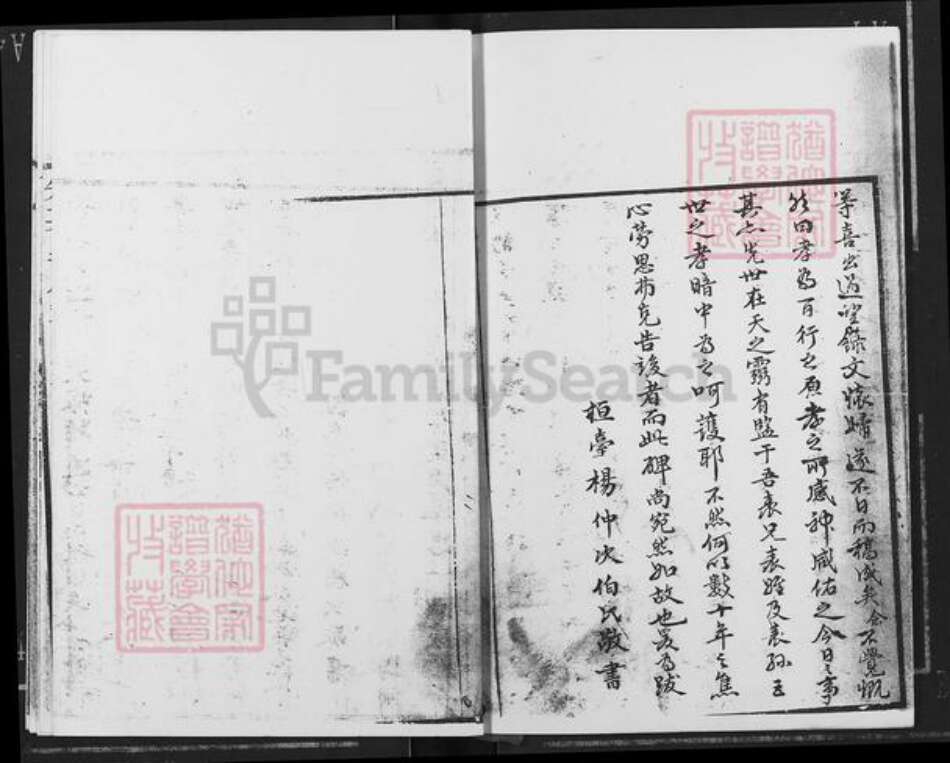 喜出過望錄文懷歸遂不日而稿成矣余不覺慨
然曰孝為百行之原孝之所感神咸佑之今日之事
其亦先世在天之靈有監于吾表兄表姪及表孫三
世之孝暗中為之呵護耶不然何以數十年之焦
心勞思者而此碑尚宛然如故也爰為跋
桓臺楊仲次伯氏敬書
FamilySearch
譜學會
收藏